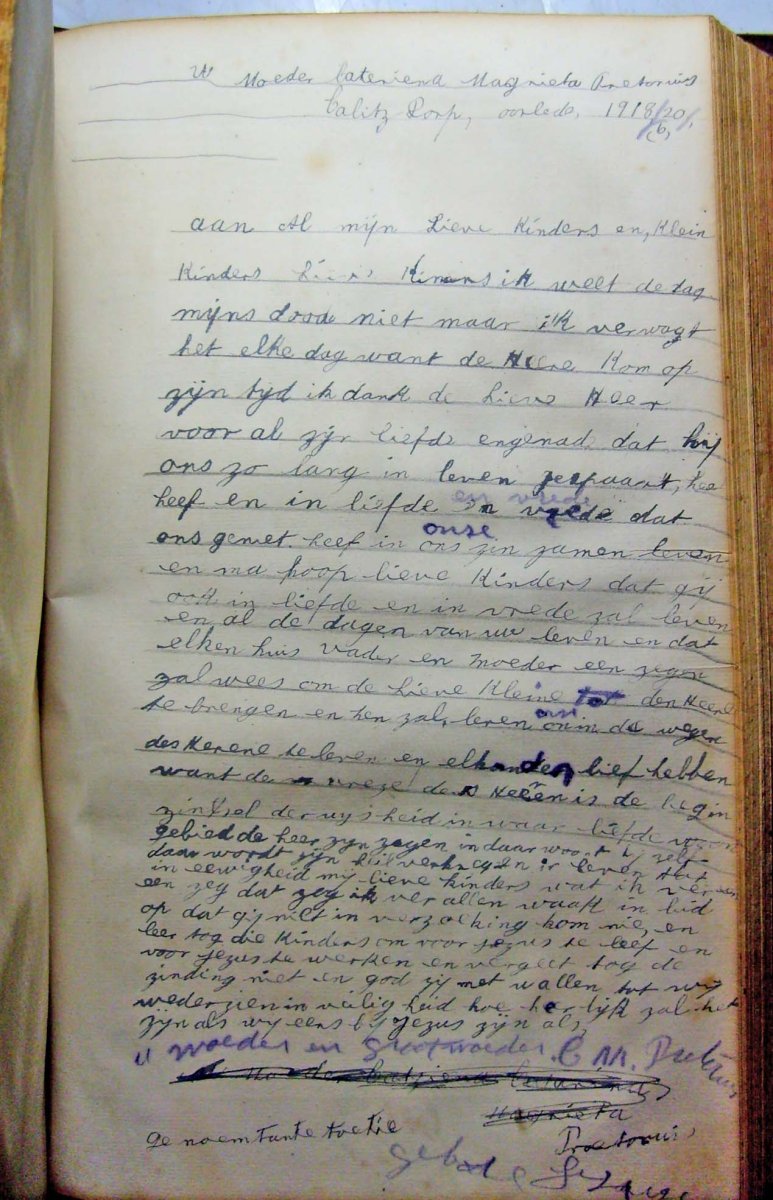 W Moeder Cateriena Magrieta Pretorius
Calitz Dorp, oorleds, 1918/20/
6,
aan Al mijn Lieve Kinders en, Klein
Kinders Lieve Kinders ik weet de dag
mijns dood niet maar ik verwagt
het elke dag want de Heere Kom op
zijn tijd ik dank de Lieve Heer
voor al zijn liefde en genade dat hij
ons zo lang in leven gespaart,
heef en in liefde en vrede dat
en vrede
ons geniet heef in ons zyn zamen leven
onze
en na hoop lieve Kinders dat gij
ook in liefde en in vrede zal leven
en al de dagen van uw leven en dat
elken huis vader en moeder een zegen
zal wees om de Lieve Kleine tot den Heere
te brengen en hen zal, leren om in de wegen
des Herene te leven en elkanden lief hebben
want de vreze des Heeren is de Begin
zintsel der wysheid in waar liefde woon
gebied de heer zyn zegen in daar woont hy zelf
daar wordt zyn heil verkregen
in eewigheid my lieve kinders wat ik ver een
een zeg dat zeg ik ver allen waak in bid
op dat gij niet in verzoeking kom nie, en
leer tog die Kinders om voor jezus te leef en
voor jezus te werken en vergeet tog de
zinding niet en god zij met u allen tot wy
weder zien in veilig heid hoe heerlyk zal het
zijn als wy eens by Jezus zijn als,
u moeder en Grootmoeder. C M. Pretorius
Moeder
Magrieta
Pretorius
Genoemtante toetie
gebore